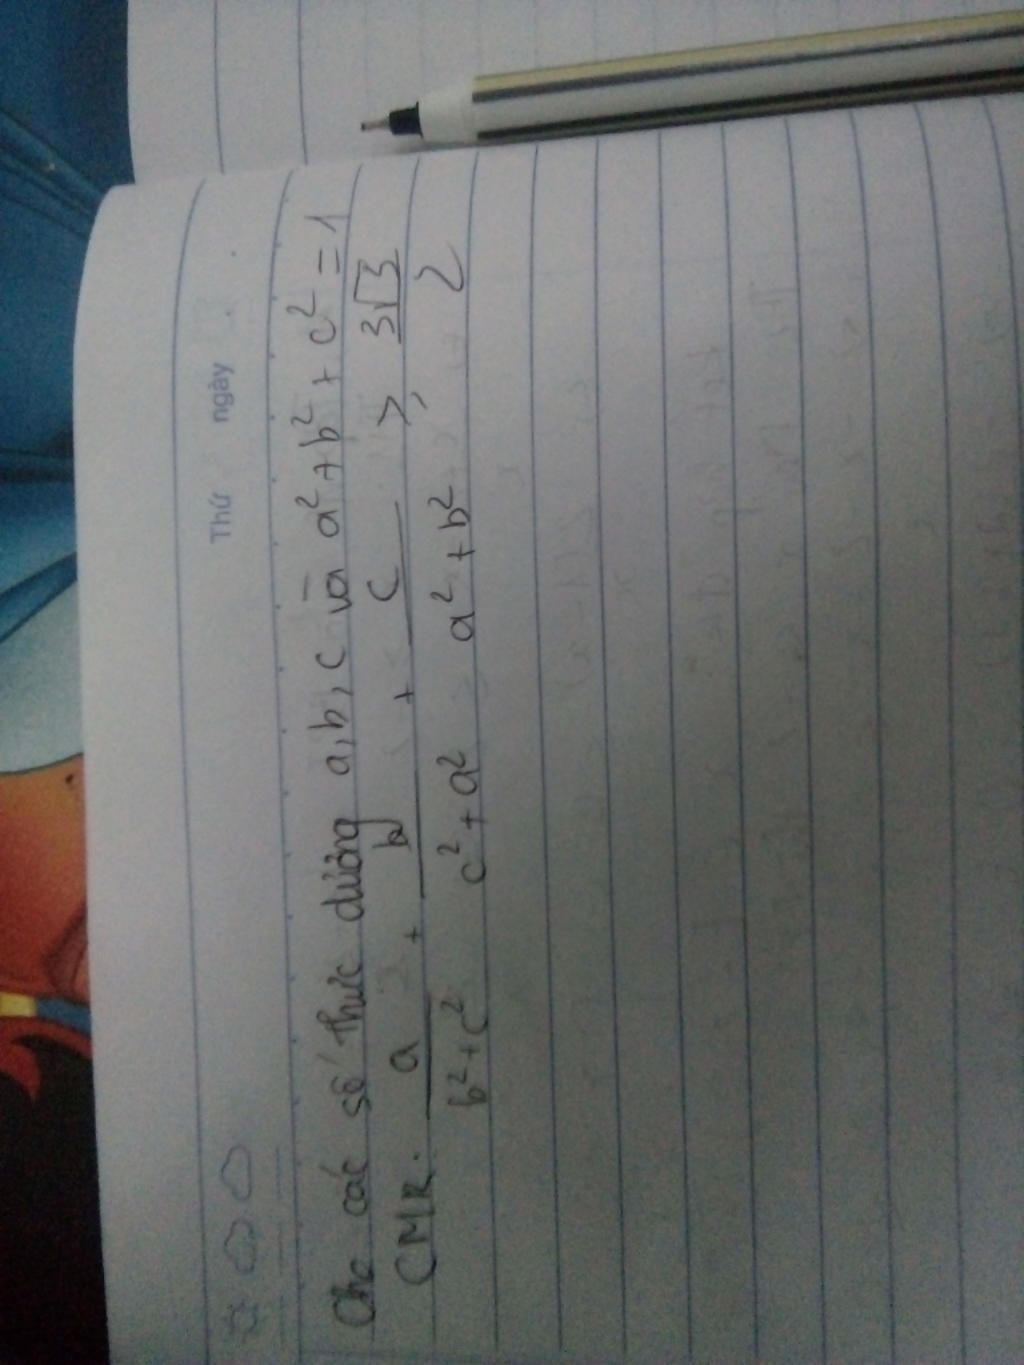 Thứ ngày
Cho các số thực dương a, b, c và a² + b² + c² = 1
CMR: a/(b² + c²) + b/(c² + a²) + c/(a² + b²) ≥ 3√3/2